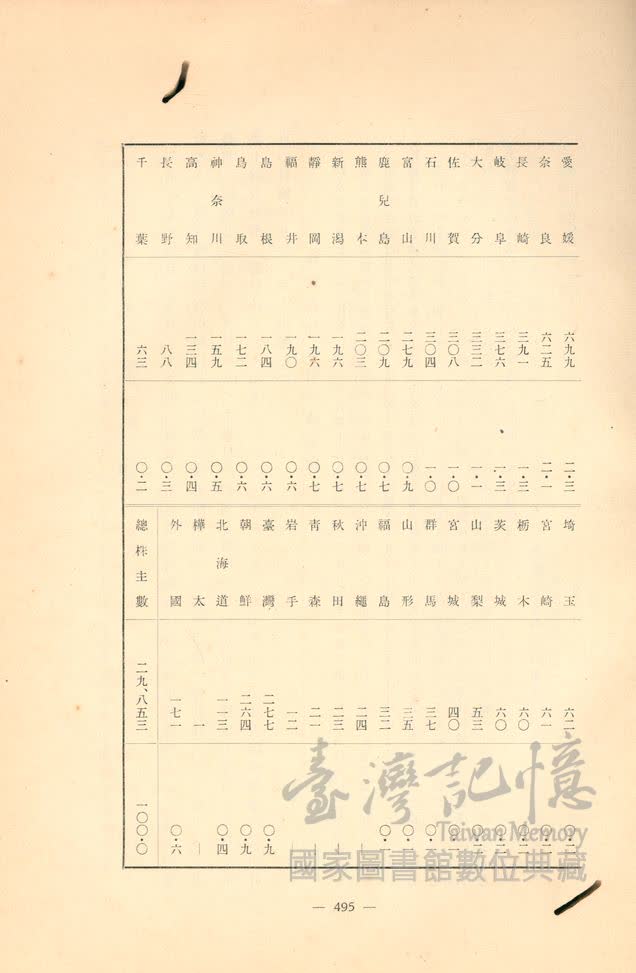 愛媛 六九九 二・三
奈良 六二五 二・一
長崎 三九一 一・三
岐阜 三七六 一・三
大分 三三二 一・一
佐賀 三〇八 一・〇
石川 三〇四 一・〇
富山 二七九 〇・九
鹿兒島 二〇九 〇・七
熊本 二〇三 〇・七
新潟 一九六 〇・七
靜岡 一九六 〇・七
福井 一九〇 〇・六
島根 一八四 〇・六
鳥取 一七二 〇・六
神奈川 一五九 〇・五
高知 一三四 〇・四
長野 八八 〇・三
千葉 六三 〇・二
埼玉 六二 〇・二
宮崎 六一 〇・二
栃木 六〇 〇・二
茨城 六〇 〇・二
山梨 五三 〇・二
宮城 四〇 〇・一
群馬 三七 〇・一
山形 三五 〇・一
福島 三二 〇・一
沖繩 二四 ―
秋田 二三 ―
青森 二一 ―
岩手 一二 ―
臺灣 二七七 〇・九
朝鮮 二六四 〇・九
北海道 一一三 〇・四
樺太 一 ―
外國 一七一 〇・六
總株主數 二九、八五三 一〇〇・〇
臺灣記憶
Taiwan Memory
國家圖書館數位典藏
— 495 —